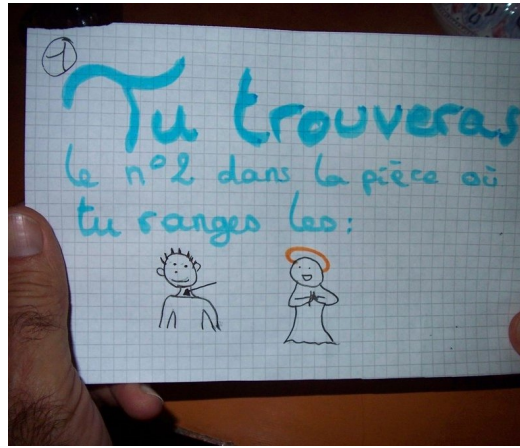 1
Tu trouveras
le n°2 dans la pièce où
tu ranges les: